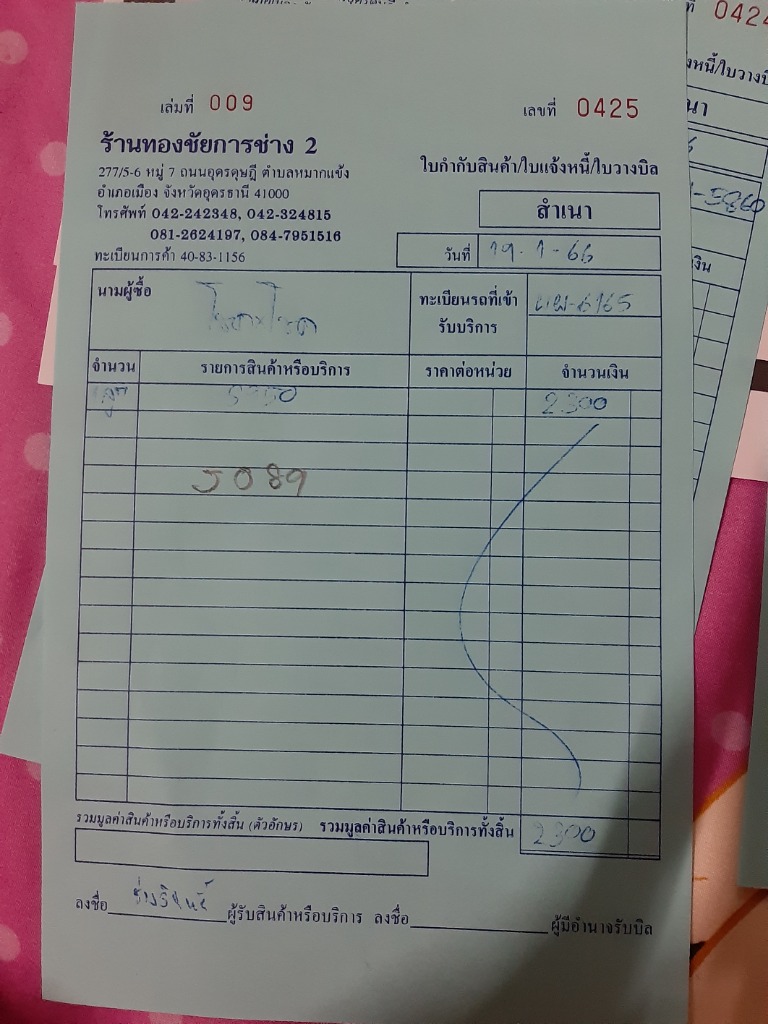 0424
เล่มที่ 009
เลขที่ 0425
ร้านทองชัยการช่าง 2
277/5-6 หมู่ 7 ถนนอุดรดุษฎี ตำบลหมากแข้ง
อำเภอเมือง จังหวัดอุดรธานี 41000
โทรศัพท์ 042-242348, 042-324815
081-2624197, 084-7951516
ทะเบียนการค้า 40-83-1156
ใบกำกับสินค้า/ใบแจ้งหนี้/ใบวางบิล
สำเนา
วันที่ 19-1-66
นามผู้ซื้อ
ทะเบียนรถที่เข้ารับบริการ -6165
จำนวน รายการสินค้าหรือบริการ ราคาต่อหน่วย จำนวนเงิน
2300
5089
รวมมูลค่าสินค้าหรือบริการทั้งสิ้น (ตัวอักษร) รวมมูลค่าสินค้าหรือบริการทั้งสิ้น 2300
ลงชื่อ ผู้รับสินค้าหรือบริการ ลงชื่อ ผู้มีอำนาจรับบิล